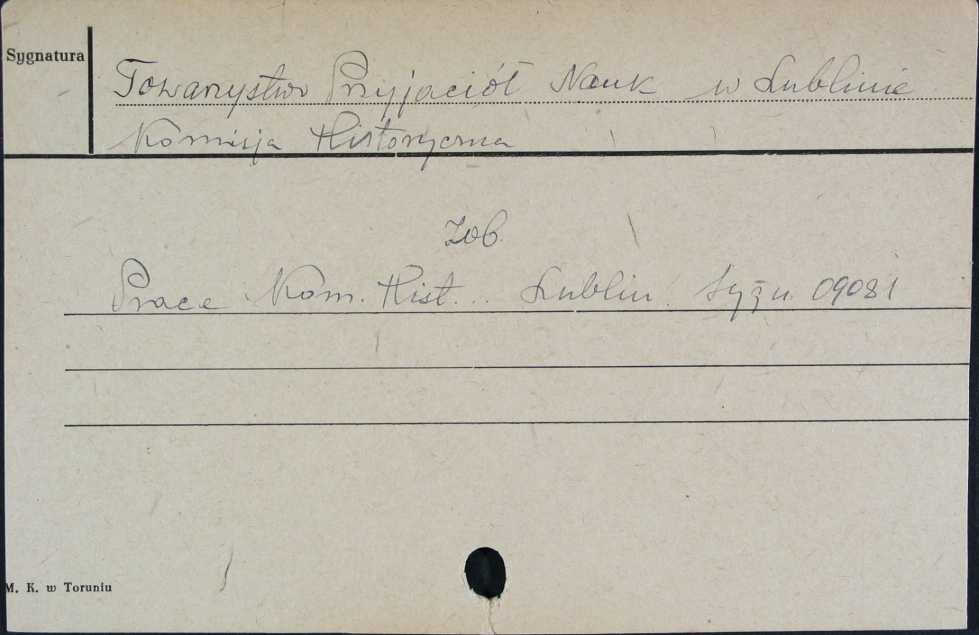 Sygnatura
Towarzystwo Przyjaciół Nauk w Lublinie
Komisja Historyczna
Zob.
Prace Kom. Hist... Lublin. Sygn. 09081
M. K. w Toruniu